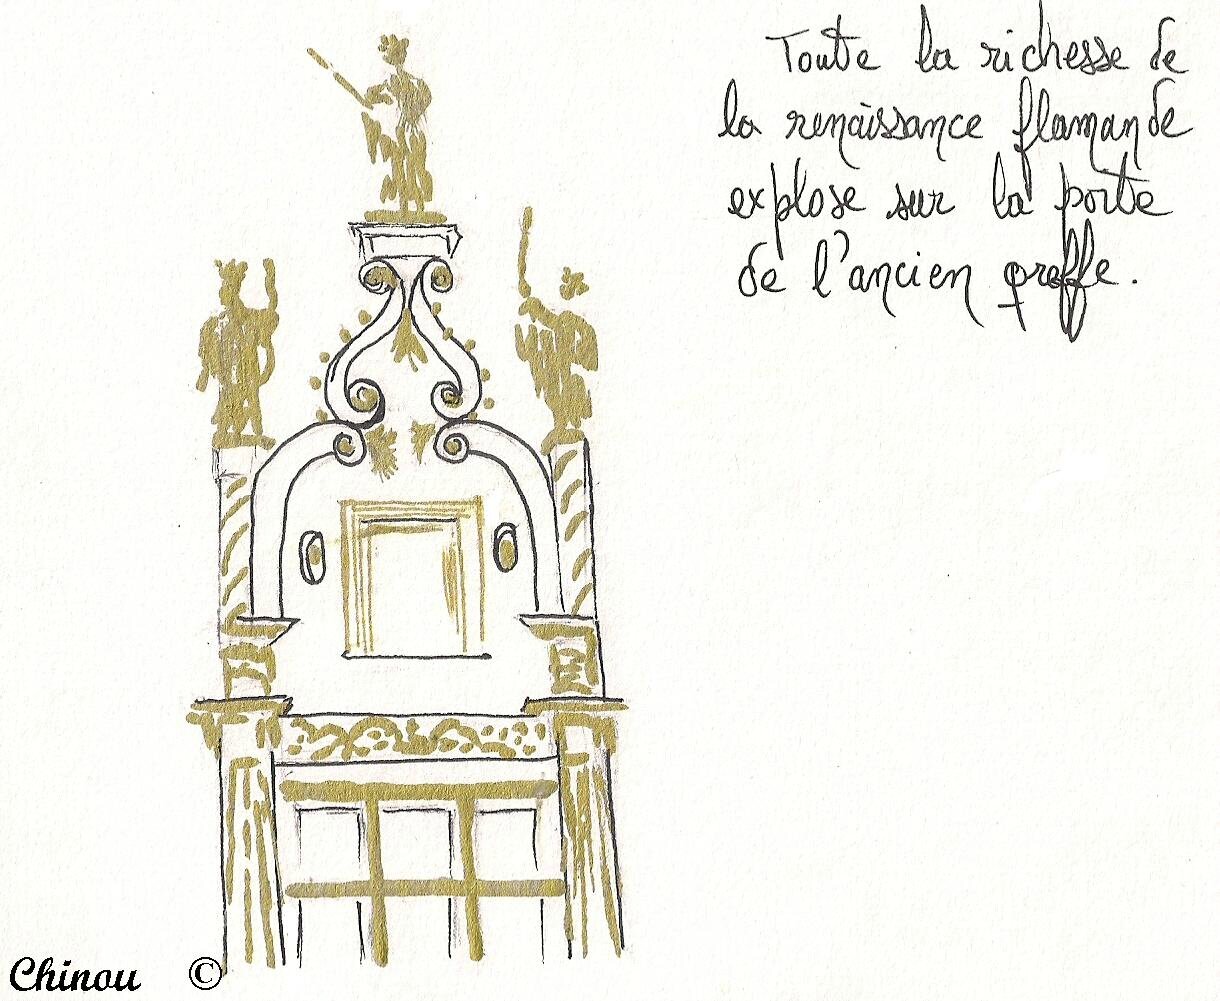 Toute la richesse de
la renaissance flamande
explose sur la porte
de l'ancien greffe.
Chinou ©